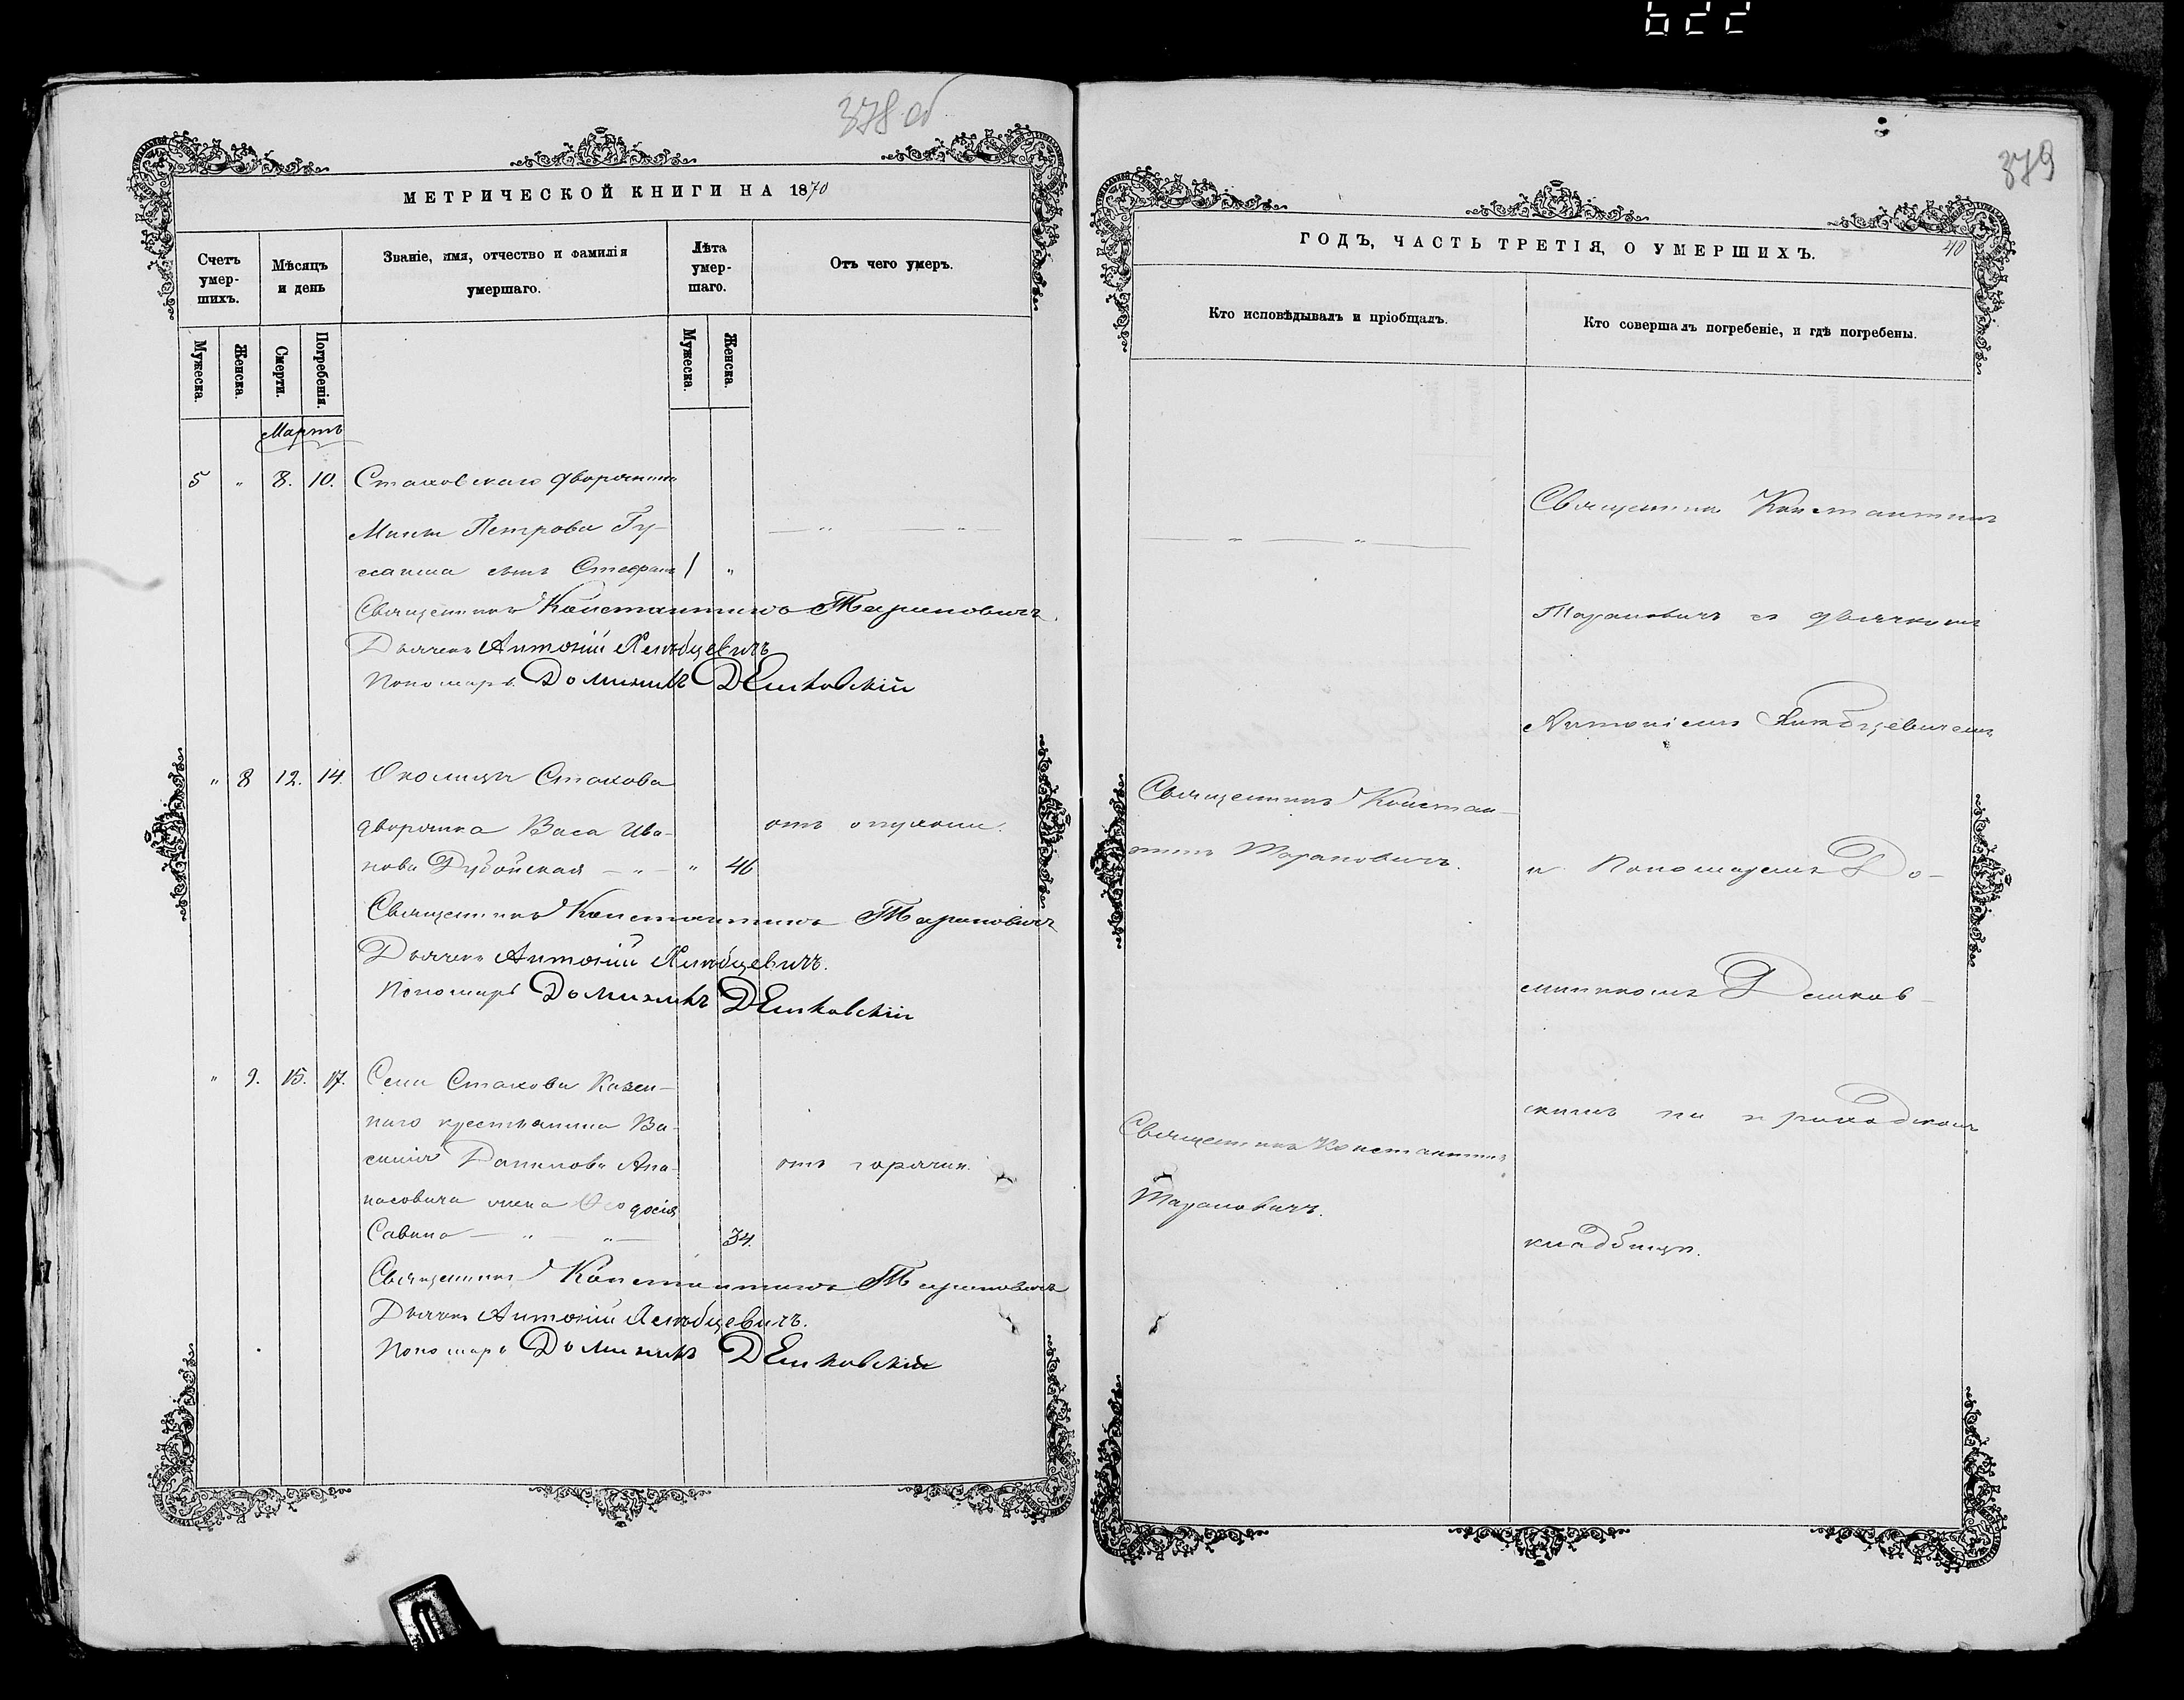 622
378 об
МЕТРИЧЕСКОЙ КНИГИ НА 1870
Счетъ умершихъ.
Мѣсяцъ и день
Званіе, имя, отчество и фамилія умершаго.
Лѣта умершаго.
Отъ чего умеръ.
Мужеска.
Женска.
Смерти.
Погребенія.
Мужеска.
Женска.
Мартъ
5 " 8. 10. Стаховскаго дворянина
Петрова Гу-
сына Стефанъ 1 "
Священникъ Константинъ Тарановичъ.
Дьячекъ Антоній
Пономарь Доминикъ Дешковскій
" 8 12. 14. Околицы Стахова
дворянка Васа Ива-
нова Дубойская — " — " 46
отъ опухоли.
Священникъ Константинъ Тарановичъ
Дьячекъ Антоній
Пономарь Доминикъ Дешковскій
" 9. 15. 17. Села Стахова Казен-
наго крестьянина Ва-
силія Данилова Апа-
насовича жена Ѳеодосія
Савина — " — " — 34.
отъ горячки.
Священникъ Константинъ Тарановичъ
Дьячекъ Антоній
Пономарь Доминикъ Дешковскій
379
ГОДЪ, ЧАСТЬ ТРЕТІЯ, О УМЕРШИХЪ.
40
Кто исповѣдывалъ и пріобщалъ.
Кто совершалъ погребеніе, и гдѣ погребены.
Священникъ Констан-
тинъ Тарановичъ.
Священникъ Константинъ
Тарановичъ.
Священникъ Константинъ
Тарановичъ съ дьячкомъ
Антоніемъ
и Пономаремъ До-
миникомъ Дешков-
скимъ на приходскомъ
кладбищѣ.